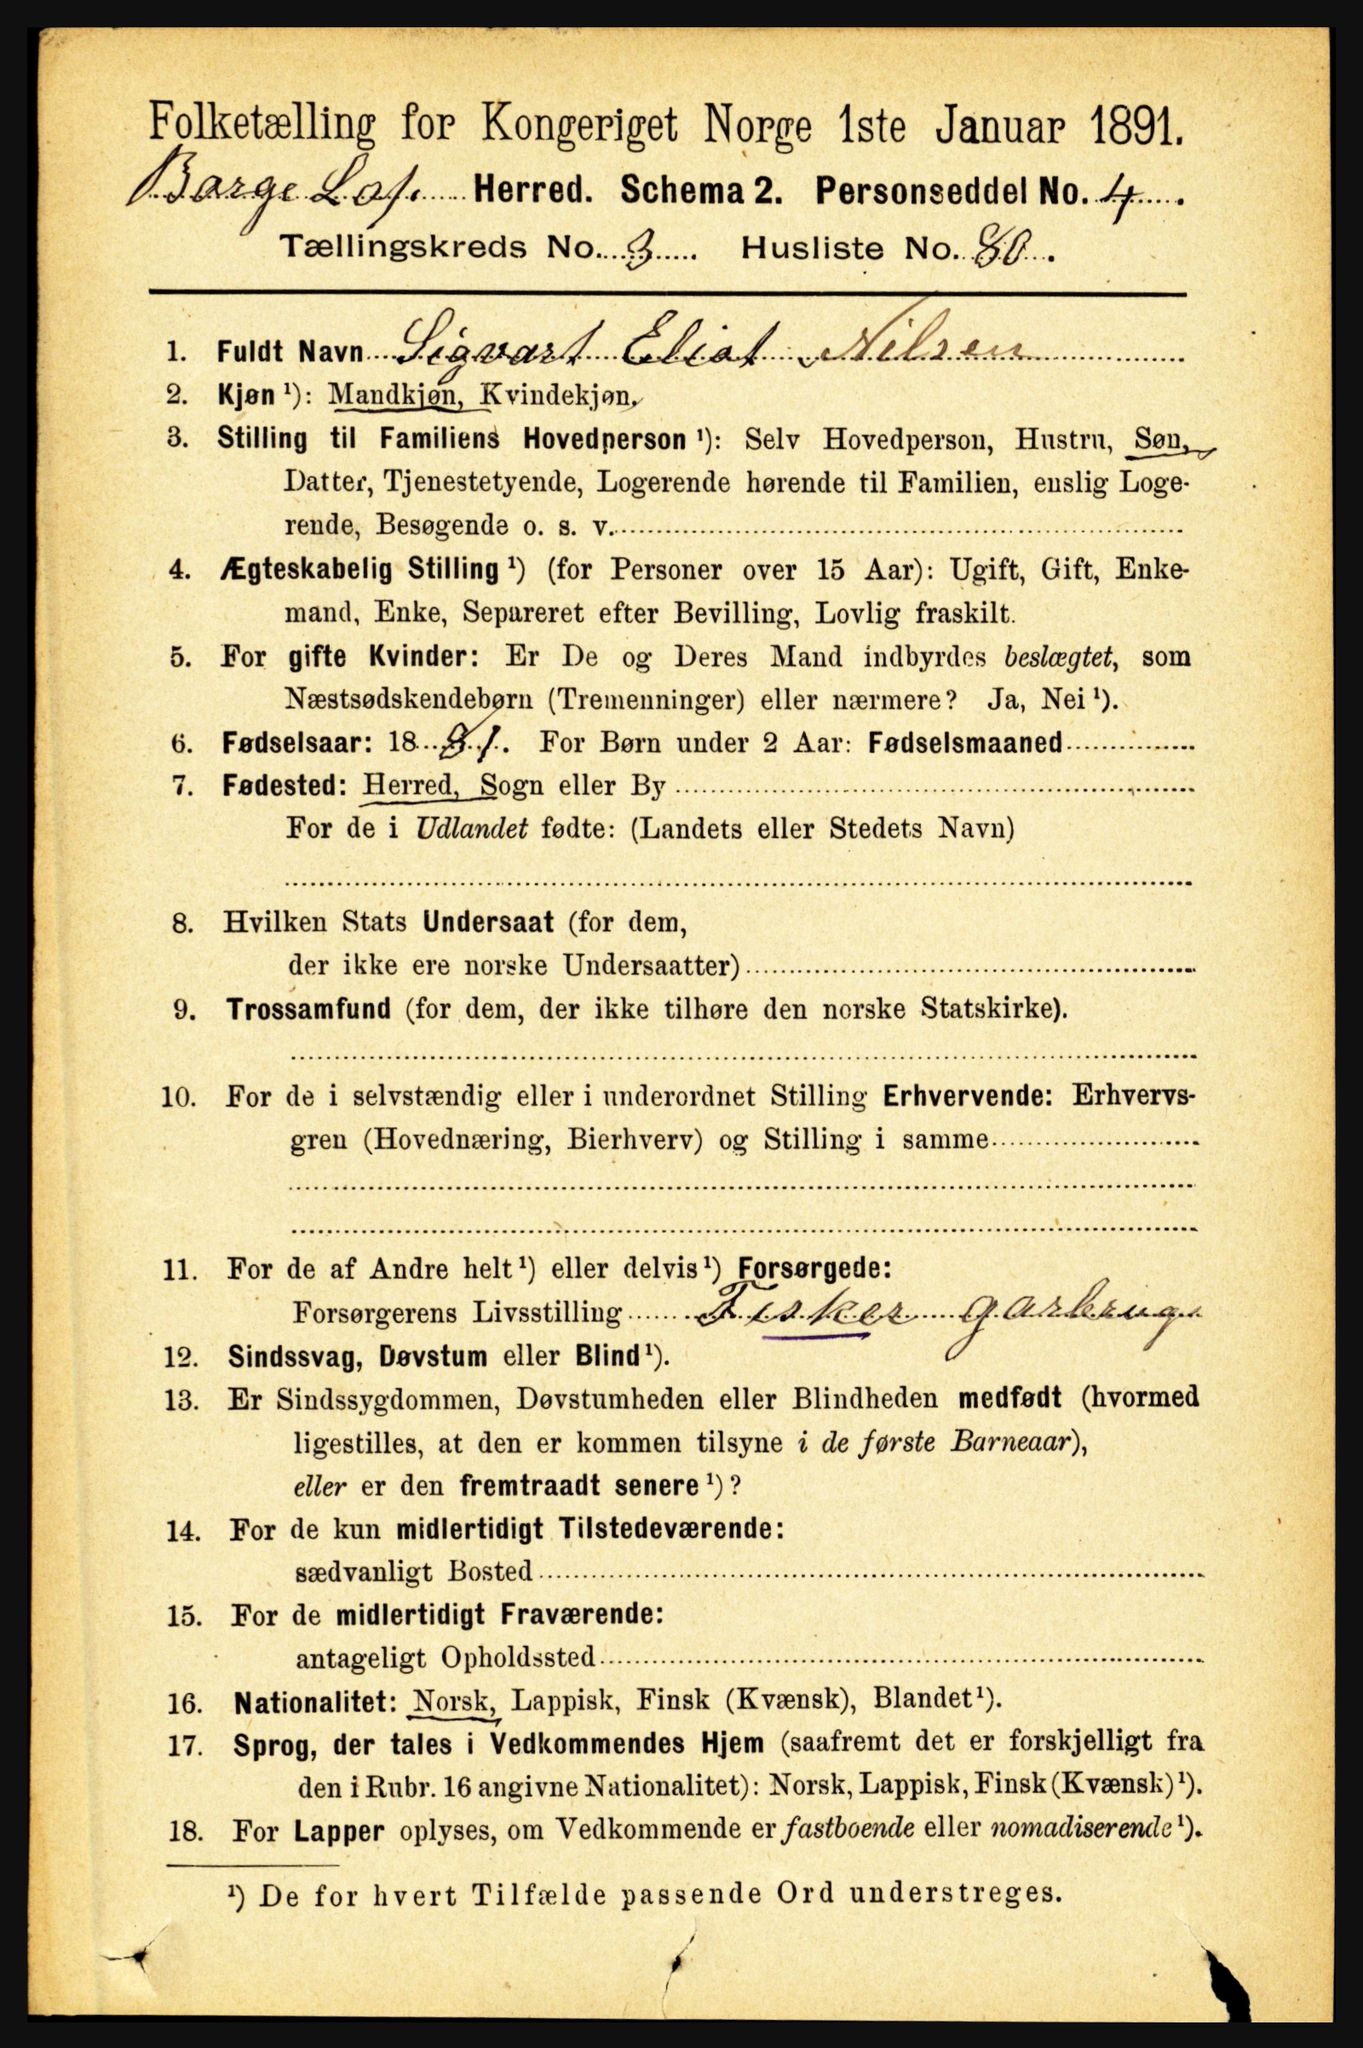 Folketælling for Kongeriget Norge 1ste Januar 1891.
Borge Lof. Herred. Schema 2. Personseddel No. 4.
Tællingskreds No. 3. Husliste No. 80.
1. Fuldt Navn Sigvart Eliot Nilsen
2. Kjøn ¹): Mandkjøn, Kvindekjøn.
3. Stilling til Familiens Hovedperson ¹): Selv Hovedperson, Hustru, Søn,
Datter, Tjenestetyende, Logerende hørende til Familien, enslig Loge-
rende, Besøgende o. s. v.
4. Ægteskabelig Stilling ¹) (for Personer over 15 Aar): Ugift, Gift, Enke-
mand, Enke, Separeret efter Bevilling, Lovlig fraskilt.
5. For gifte Kvinder: Er De og Deres Mand indbyrdes beslægtet, som
Næstsødskendebørn (Tremenninger) eller nærmere? Ja, Nei ¹).
6. Fødselsaar: 1881. For Børn under 2 Aar: Fødselsmaaned
7. Fødested: Herred, Sogn eller By
For de i Udlandet fødte: (Landets eller Stedets Navn)
8. Hvilken Stats Undersaat (for dem,
der ikke ere norske Undersaatter)
9. Trossamfund (for dem, der ikke tilhøre den norske Statskirke).
10. For de i selvstændig eller i underordnet Stilling Erhvervende: Erhvervs-
gren (Hovednæring, Bierhverv) og Stilling i samme
11. For de af Andre helt ¹) eller delvis ¹) Forsørgede:
Forsørgerens Livsstilling Fisker garbrug
12. Sindssvag, Døvstum eller Blind ¹).
13. Er Sindssygdommen, Døvstumheden eller Blindheden medfødt (hvormed
ligestilles, at den er kommen tilsyne i de første Barneaar),
eller er den fremtraadt senere ¹)?
14. For de kun midlertidigt Tilstedeværende:
sædvanligt Bosted
15. For de midlertidigt Fraværende:
antageligt Opholdssted
16. Nationalitet: Norsk, Lappisk, Finsk (Kvænsk), Blandet ¹).
17. Sprog, der tales i Vedkommendes Hjem (saafremt det er forskjelligt fra
den i Rubr. 16 angivne Nationalitet): Norsk, Lappisk, Finsk (Kvænsk) ¹).
18. For Lapper oplyses, om Vedkommende er fastboende eller nomadiserende ¹).
¹) De for hvert Tilfælde passende Ord understreges.